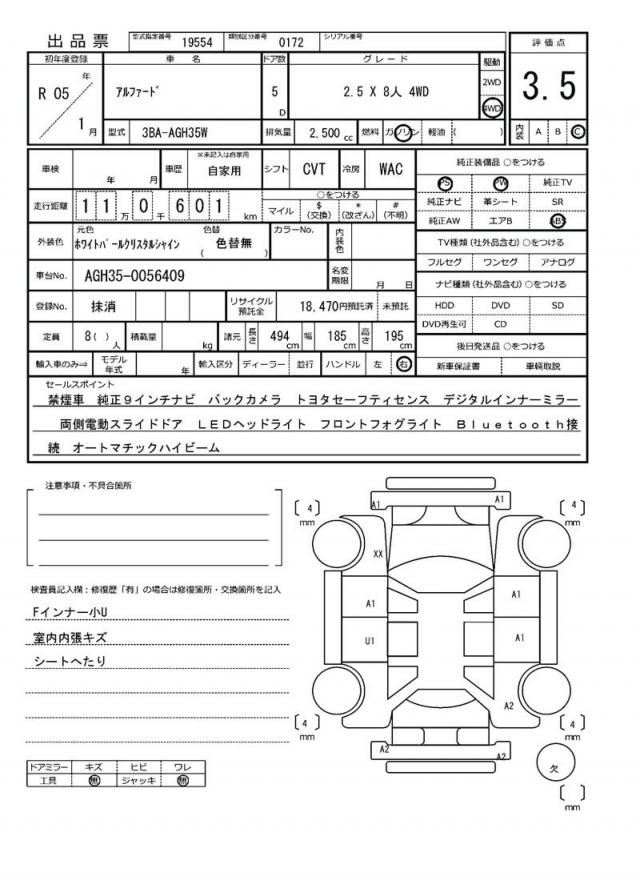 出品票 型式指定番号 19554 類別区分番号 0172 シリアル番号
評価点
3.5
内装 A B Ⓒ
初年度登録 車名 ドア数 グレード 駆動
R 05 年 1 月 アルファード 5 D 2.5 X 8人 4WD 2WD 4WD
型式 3BA-AGH35W 排気量 2,500 cc 燃料 ガソリン 軽油 ( )
車検 年 月 車歴 ※未記入は自家用 自家用 シフト CVT 冷房 WAC
走行距離 1 1 万 0 千 6 0 1 km
○をつける
マイル $ (交換) * (改ざん) # (不明)
外装色 元色 ホワイトパールクリスタルシャイン 色替 ( 色替無 ) カラーNo. 内装色
車台No. AGH35-0056409 名変期限 月 日
登録No. 抹消 リサイクル預託金 18,470円預託済 未預託
定員 8( ) 人 積載量 kg 諸元 長さ 494 cm 幅 185 cm 高さ 195 cm
輸入車のみ⇒ モデル年式 年 輸入区分 ディーラー 並行 ハンドル 左 右
純正装備品 ○をつける
PS PW 純正TV
純正ナビ 革シート SR
純正AW エアB ABS
TV種類 (社外品含む) ○をつける
フルセグ ワンセグ アナログ
ナビ種類 (社外品含む) ○をつける
HDD DVD SD
DVD再生可 CD
後日発送品 ○をつける
新車保証書 車輌取説
セールスポイント
禁煙車 純正9インチナビ バックカメラ トヨタセーフティセンス デジタルインナーミラー
両側電動スライドドア LEDヘッドライト フロントフォグライト Bluetooth接
続 オートマチックハイビーム
注意事項・不具合箇所
検査員記入欄：修復歴「有」の場合は修復箇所・交換箇所を記入
Fインナー小U
室内内張キズ
シートへたり
ドアミラー キズ ヒビ ワレ
工具 無 ジャッキ 無
[ 4 ] mm
A1
A1
[ 4 ] mm
XX
A1
A1
U1
A1
A2
[ 4 ] mm
A2
A2
[ 4 ] mm
欠
[ ] mm